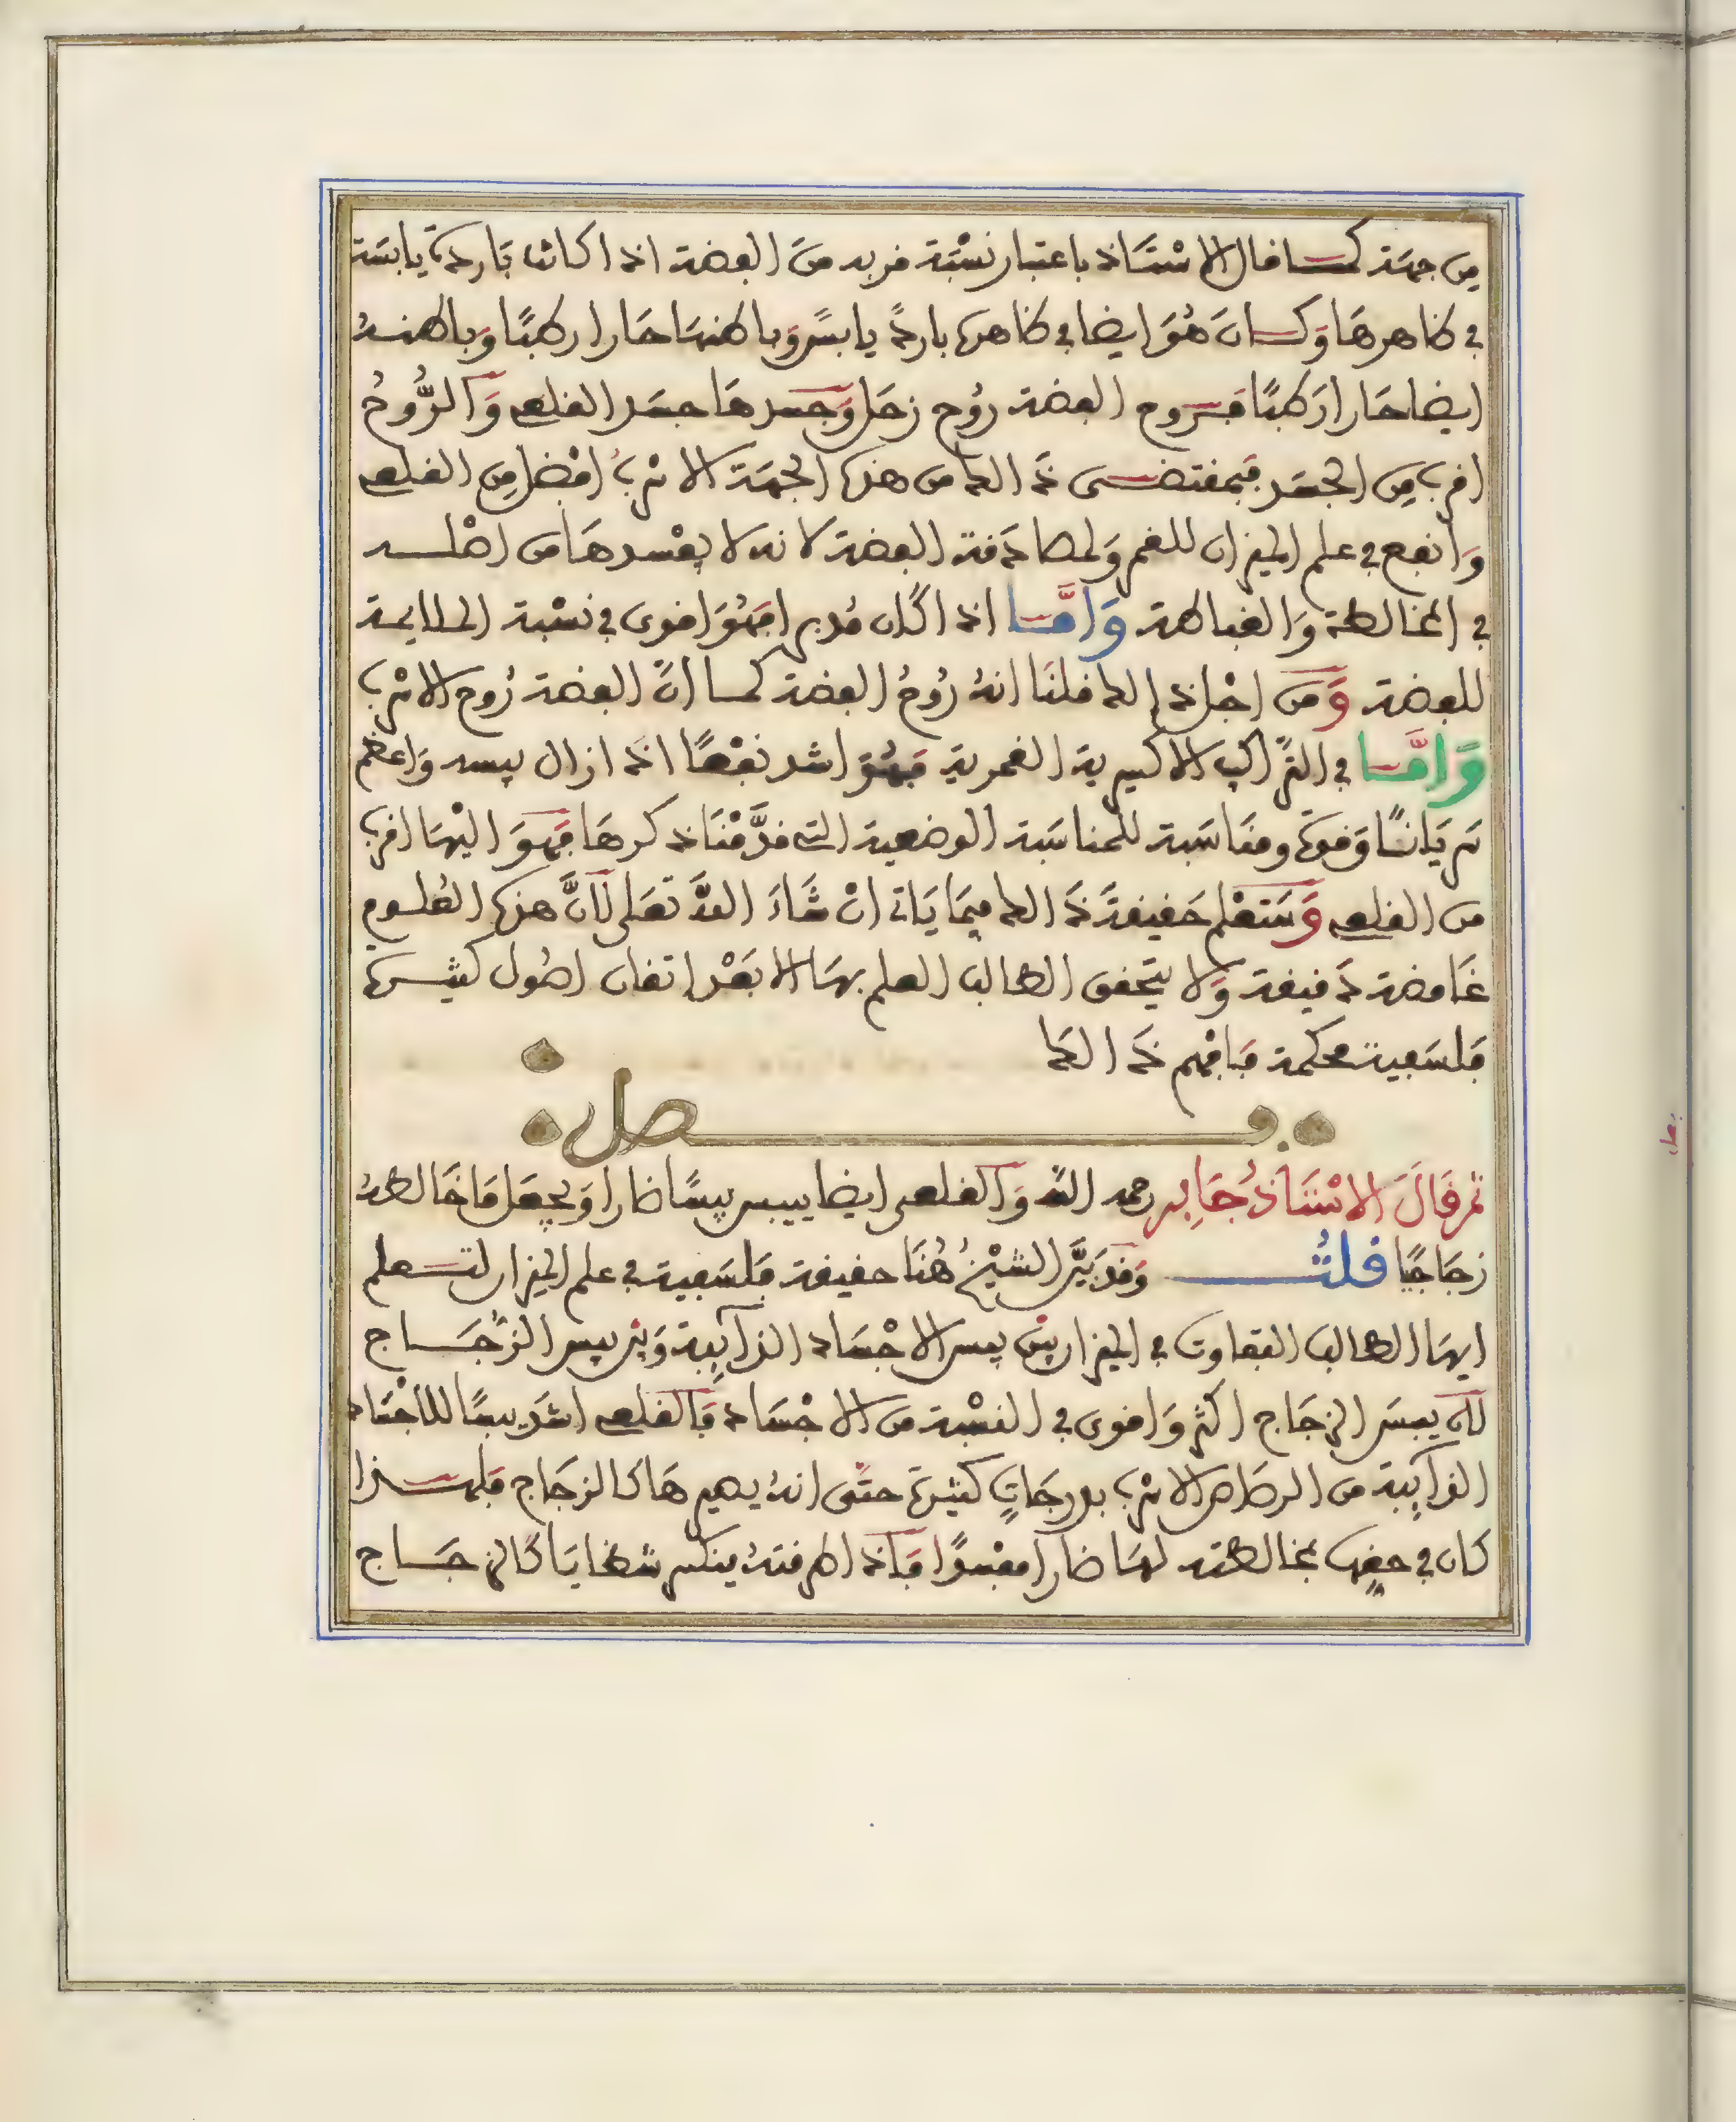 من جهة كما قال الاستاذ باعتبار نسبة قربه من الفضة اذا كانت باردة يابسة
في ظاهرها وكان هو ايضا في ظاهره باردً يابسً وباطنها حارا رطبًا وباطنه
ايضا حارا رطبًا فروح الفضة روح زحل وجسدها جسد القلعي والرُّوحُ
اقرب من الجسد فبمقتضى ذالك من هذه الجهة الاسرب افضل من القلعي
وانفع في علم الميزان للقمر ولمصادقة الفضة لانه لا يفسدها من اصله
في المخالطة والغباطة وَامَّا اذا كان مُدبرا فهُوَ اقوى في نسبة الملايمة
للفضة وَمن اجل ذالك قلنَا انهُ رُوحُ الفضة كما انَّ الفضة رُوح الاسرب
وَامَّا في التراكيب الاكسيرية القمرية فهُوَ اشد نفعًا اذَا زال يبسه وَاعظم
سريَانًا وَقوة ومنَاسَبة للمناسَبة الوضعية التي قدَّمْنَا ذكرهَا فهوَ اليْهَا اقرب
من القلعي وَسَتعْلم حَقيقةَ ذَالك فيمَا يَاتي انْ شَاءَ اللهُ تعَلى لَانَّ هذه العُلوم
غَامضة دَقيقة وَلا يتحقق الطالب العلم بهَا الا بَعْد اتقان اصُول كثيرة
فلسَفية محكمة فَافهم ذَالك
فصل
ثم قَالَ الاسْتَاذُ جَابِر رحمه الله وَالقلعي ايضا ييبس يبسًا ضارا وَيجعَل مَا خَالطهُ
زجَاجيًا قلتُ وَقد بَيَّن الشيْخُ هُنَا حقيقة فلسَفية في علم الميزان لتعلم
ايهَا الطالب التفاوت في الميزان بيْن يبس الاجْسَاد الذآئِبة وَبيْن يبس الزُّجَاج
لان يبسَ الزجَاج اكثر وَاقوى في النسْبة من الاجْسَاد فَالقلعي اشدّ يبسًا للاجْسَاد
الذآئِبة من الرصَاص الاسرب بدرجَاتٍ كثيرة حتَّى انهُ يصيرهَا كالزجَاج فلهذا
كان في حقها مخالطته لهَا ضارا مفسْدًا فاذا طرقتهُ ينكسر شظايَا كَالزجَاج